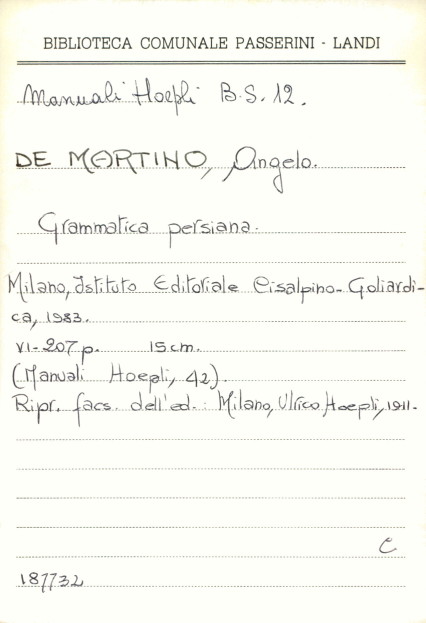 BIBLIOTECA COMUNALE PASSERINI - LANDI
Manuali Hoepli B.S.12.
DE MARTINO, Angelo.
Grammatica persiana.
Milano, Istituto Editoriale Cisalpino-Goliardi-
ca, 1983.
VI-207 p. 15 cm.
(Manuali Hoepli, 42).
Ripr. facs. dell'ed.: Milano, Ulrico Hoepli, 1911.
C
187732